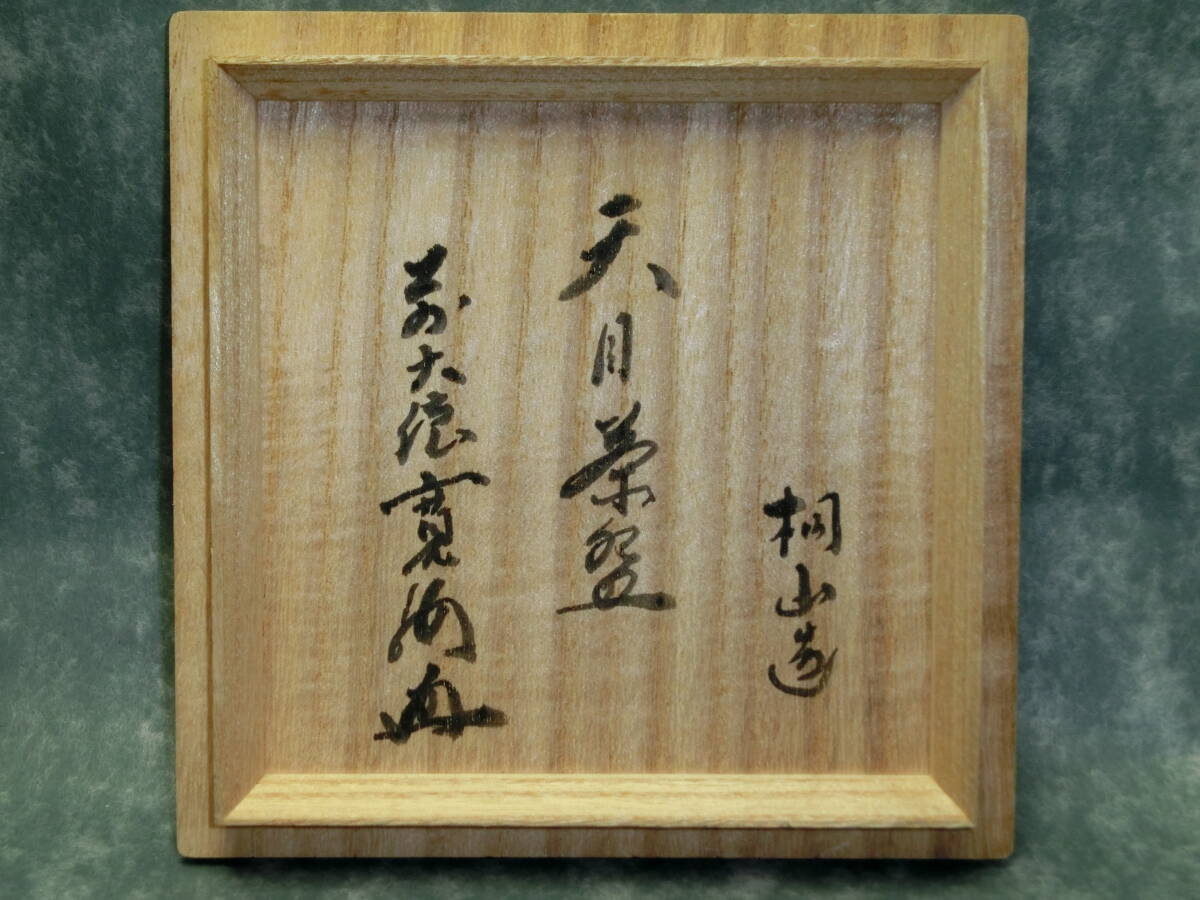 桐山造
天目茶盌
前大徳寛海